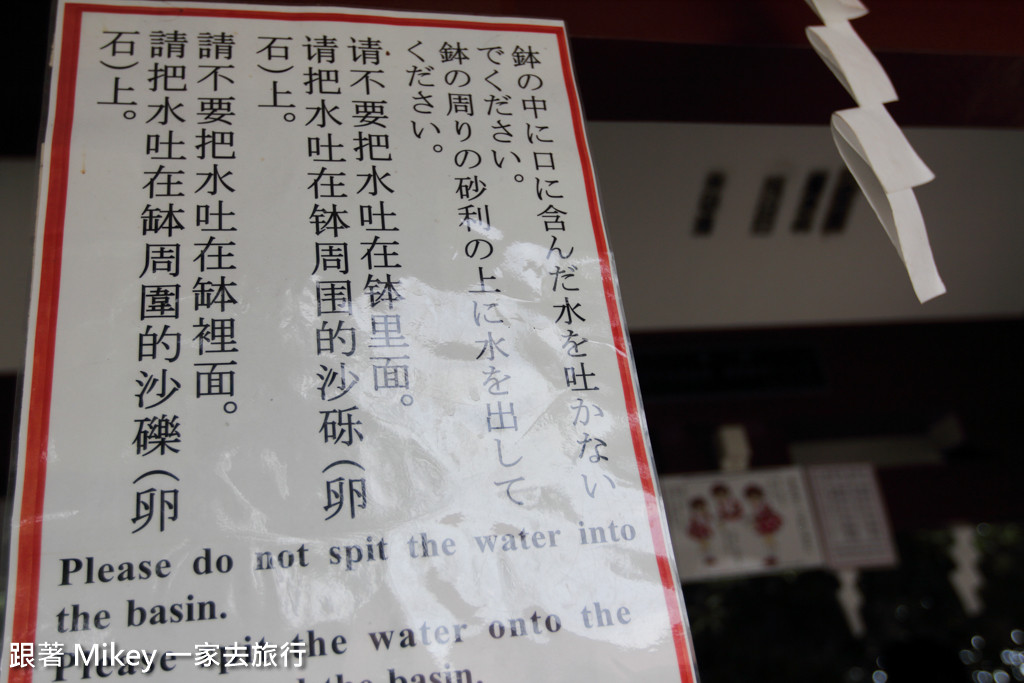 鉢の中に口に含んだ水を吐かない
でください。
鉢の周りの砂利の上に水を出して
ください。
请不要把水吐在钵里面。
请把水吐在钵周围的沙砾(卵
石)上。
請不要把水吐在缽裡面。
請把水吐在缽周圍的沙礫(卵
石)上。
Please do not spit the water into
the basin.
Please spit the water onto the
the basin.
跟著 Mikey 一家去旅行